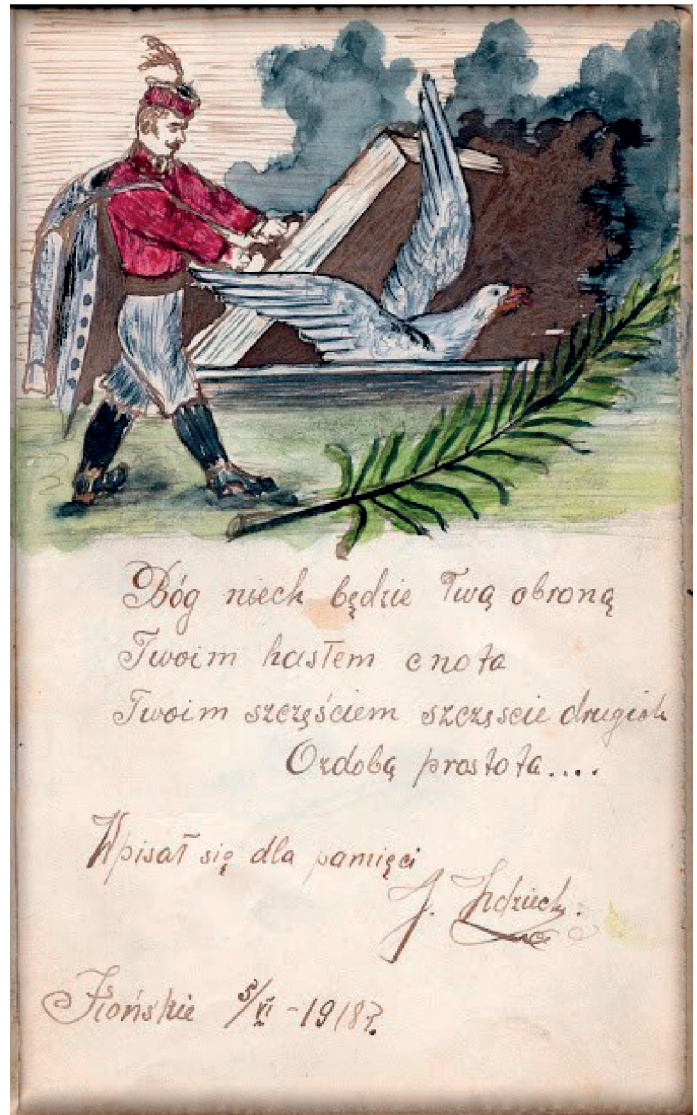 Bóg niech będzie Twą obroną
Twoim hasłem cnota
Twoim szczęściem szczęscie drugich
Ozdobą prostota....
Wpisał się dla pamięci
J.
5/VI - 1918 r.